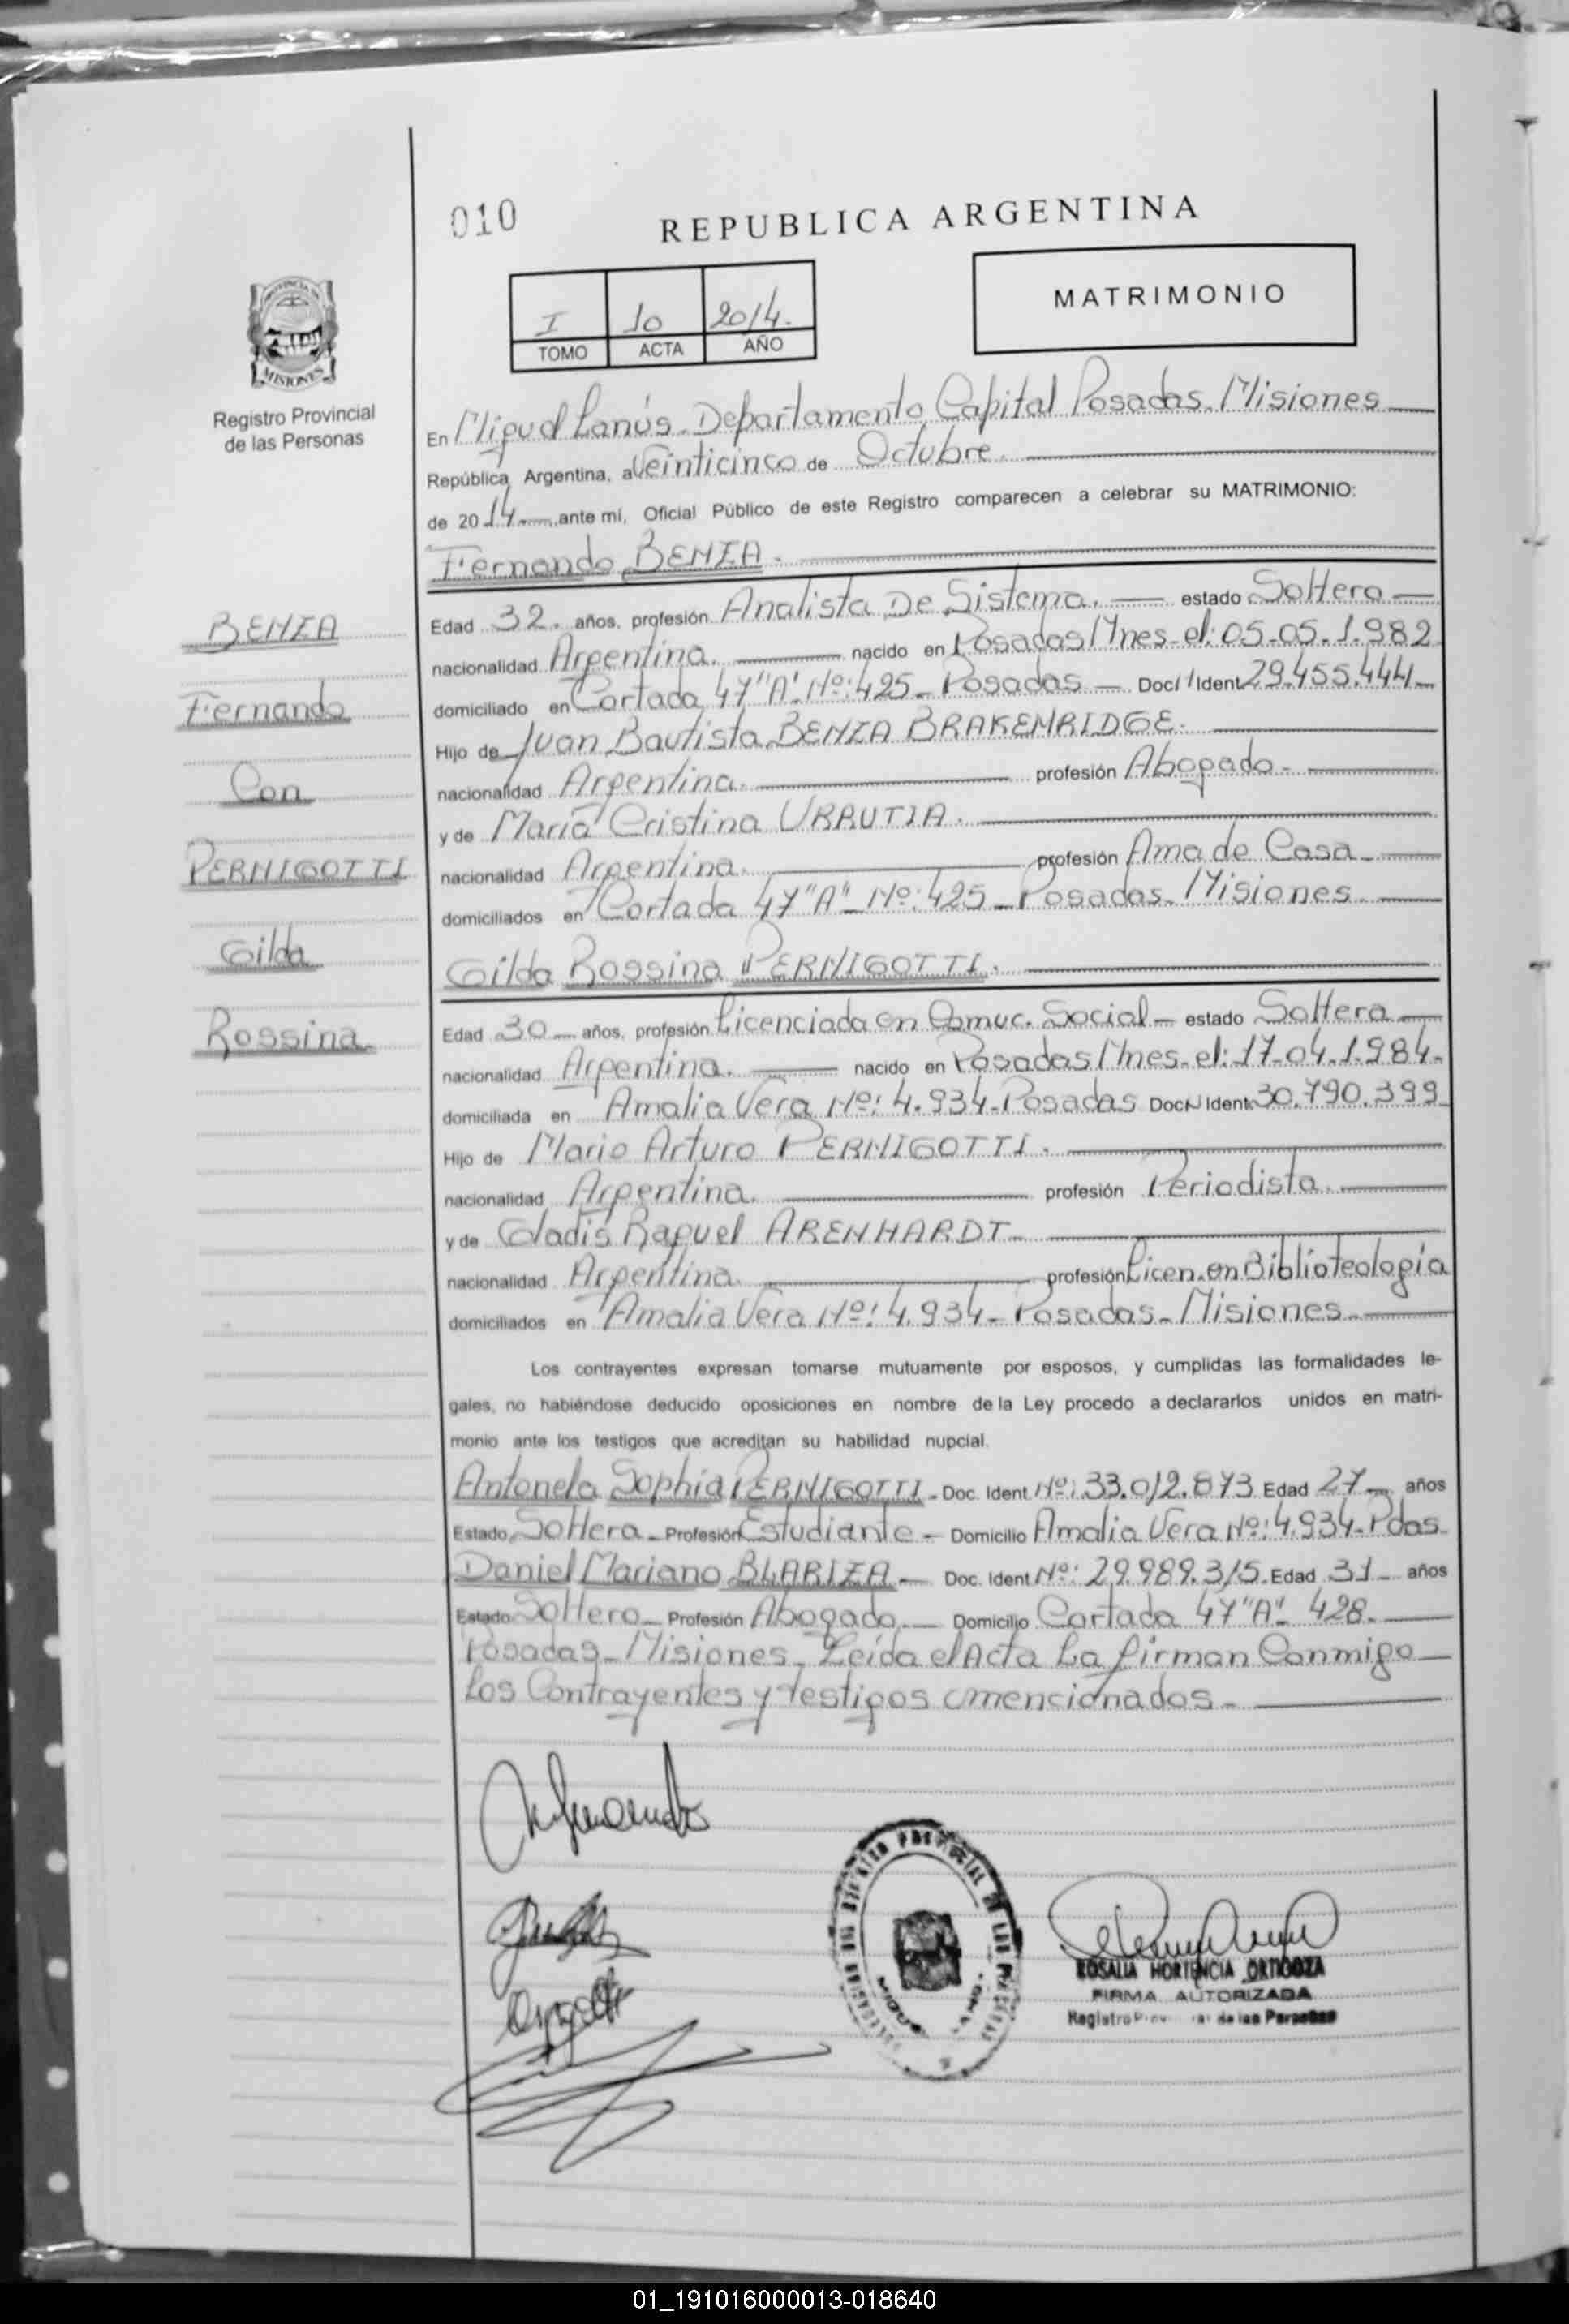 010
REPUBLICA ARGENTINA
I 10 2014.
TOMO ACTA AÑO
MATRIMONIO
PROVINCIA DE
MISIONES
Registro Provincial
de las Personas
En Miguel Lanús. Departamento Capital Posadas. Misiones
República Argentina, a Veinticinco de Octubre.
de 2014 ante mí, Oficial Público de este Registro comparecen a celebrar su MATRIMONIO:
Fernando BENZA.
BENZA
Fernando
Con
PERNIGOTTI
Gilda
Rossina
Edad 32. años, profesión Analista De Sistema. estado Soltero
nacionalidad Argentina. nacido en Posadas Mnes. el: 05-05.1.982
domiciliado en Cortada 47"A" Nº: 425 - Posadas - Doc. Ident 29.455.444
Hijo de Juan Bautista BENZA BRAKENRIDGE.
nacionalidad Argentina. profesión Abogado.
y de María Cristina URRUTIA.
nacionalidad Argentina. profesión Ama de Casa
domiciliados en Cortada 47"A" Nº: 425 - Posadas. Misiones
Gilda Rossina PERNIGOTTI.
Edad 30 años, profesión Licenciada en Comuc. Social - estado Soltera
nacionalidad Argentina. nacido en Posadas Mnes. el: 17-04.1.984.
domiciliada en Amalia Vera Nº: 4.934 - Posadas Doc. Ident 30.790.399
Hijo de Mario Arturo PERNIGOTTI.
nacionalidad Argentina. profesión Periodista.
y de Gladis Raquel ARENHARDT
nacionalidad Argentina. profesión Licen. en Biblioteología
domiciliados en Amalia Vera Nº: 4.934 - Posadas - Misiones
Los contrayentes expresan tomarse mutuamente por esposos, y cumplidas las formalidades le-
gales, no habiéndose deducido oposiciones en nombre de la Ley procedo a declararlos unidos en matri-
monio ante los testigos que acreditan su habilidad nupcial.
Antonela Sophia PERNIGOTTI - Doc. Ident Nº: 33.012.873 Edad 27 años
Estado Soltera - Profesión Estudiante - Domicilio Amalia Vera Nº: 4.934 - Pdas.
Daniel Mariano BLARIZA - Doc. Ident Nº: 29.989.315. Edad 31 - años
Estado Soltero - Profesión Abogado. Domicilio Cortada 47"A" 428.
Posadas - Misiones. Leída el Acta La firman Conmigo
Los Contrayentes y testigos mencionados.
ROSALIA HORTENCIA ORTIGOZA
FIRMA AUTORIZADA
Registro Provincial de las Personas
01_191016000013-018640